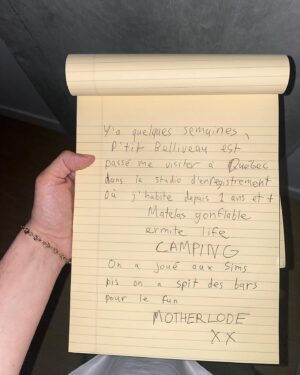 Y'a quelques semaines,
P'tit Belliveau est
passé me visiter à Québec
dans la studio d'enregistrement
où j'habite depuis 1 ans et +
Matelas gonflable
ermite life
CAMPING
On a joué aux Sims
pis on a spit des bars
pour le fun
MOTHERLODE
XX